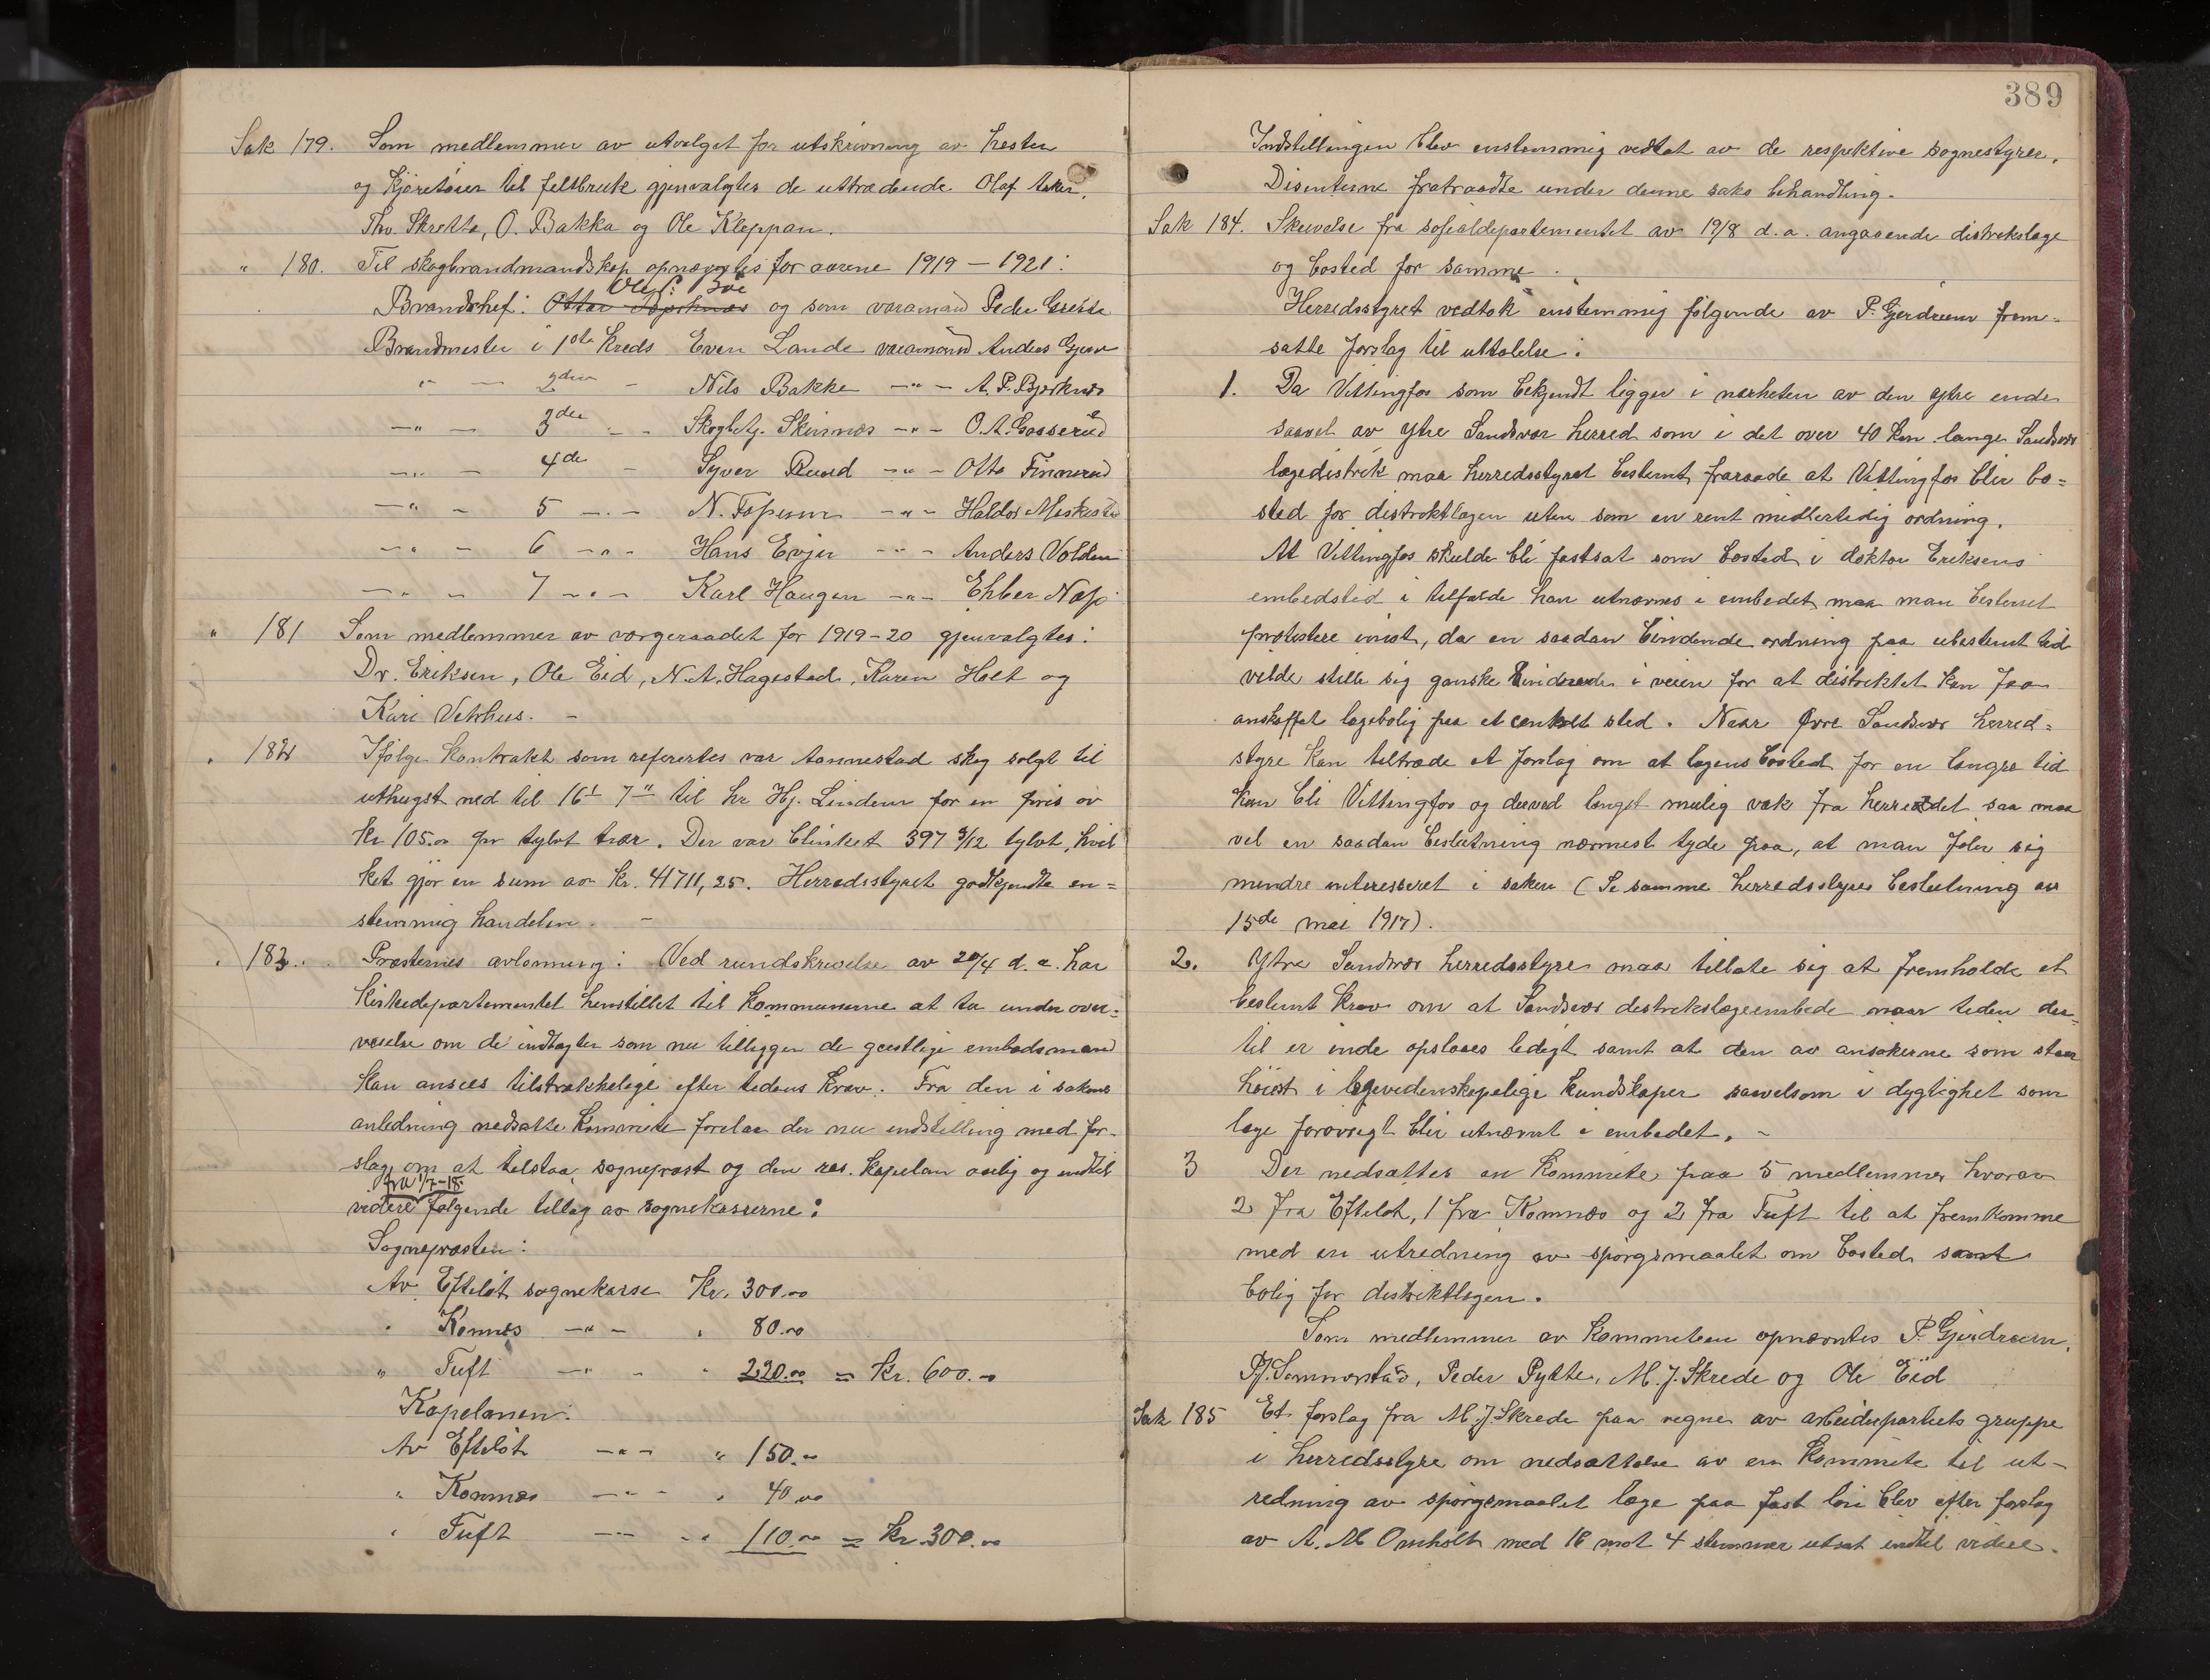 Sak 179. Som medlemmer av utvalget for utskrivning av hester
og kjøretøier til feltbruk gjenvalgtes de uttrædende Olaf Aaker,
Thv. Skrette, O. Bakka og Ole Kleppan.
" 180. Til skogbrandmandskap opnævntes for aarene 1919 – 1921:
Ole P. Boe
Brandchef: Ottar Bjerknæs og som varamand Peder Grette
Brandmester i 1ste Kreds Even Lande varamand Anders Gjerv
" — 2den – Nils Bakke –"– A. P. Bjerknæs
–"– 3die – Skogbetj. Skinnæs –"– O. A. Gosserud
–"– 4de – Syver Ruud –"– Otto Finnerud
–"– 5 –"– N. Fossum –"– Haldor
–"– 6 –"– Hans Evju –"– Anders Volden
–"– 7 –"– Karl Haugen –"– Ebber Næss
" 181 Som medlemmer av vergeraadet for 1919-20 gjenvalgtes:
Dr. Eriksen, Ole Eid, N. A. Hagestad, Karen Holt og
Kari Vehus. –
" 182 Ifølge kontrakt som refertes var Aannestad skog solgt til
uthugst ned til 16' 7" til hr Hj. Lindem for en pris av
kr 105.00 pr tylvt trær. Der var blinket 397 3/12 tylvt, hvil
ket gjør en sum av kr. 41711,25. Herredsstyret godkjendte en=
stemmig handelen. –
" 183. Præsternes avlønning: Ved rundskrivelse av 20/4 d. a. har
Kirkedepartementet henstillet til kommunerne at ta under over=
veielse om de indtægter som nu tilligger de geistlige embedsmænd
kan ansees tilstrækkelige efter tidens krav. Fra den i sakens
anledning nedsatte kommite forelaa der nu indstilling med for-
slag om at tilstaa sogneprest og den res. kapelan aarlig og indtil
fra 1/7-18
videre følgende tillæg av sognekasserne:
Sognepresten:
Av Efteløt sognekasse Kr. 300.00
" Komnes –"– " 80.00
" Tuft –"– " 220.00 = Kr. 600.–
Kapelanen:
Av Efteløt –"– " 150.–
" Komnæs –"– " 40.00
" Tuft –"– " 110.00 = Kr. 300.00
389
Indstillingen blev enstemmig vedtat av de respektive sognestyrer.
Disenterne fratraadte under denne saks behandling.
Sak 184. Skrivelse fra sosialdepartementet av 19/8 d. a. angaaende distrikslæge
og bosted for samme.
Herredsstyret vedtok enstemmig følgende av P. Gjerdrum frem-
satte forslag til uttalelse:
1. Da Vittingfos som bekjendt ligger i nærheten av den ytre ende
saavel av Ytre Sandsvær herred som i det over 40 km lange Sandsvær
lægedistrik maa herredsstyret bestemt fraraade at Vittingfos blir bo=
sted for distriktlægen uten som en rent midlertidig ordning.
At Vittingfos skulde bli fastsat som bosted i doktor Eriksens
embedstid i tilfælde han utnævnes i embedet maa man bestemt
protestere imot, da en saadan bindende ordning paa ubestemt tid
vilde stille sig ganske hindrende i veien for at distriktet kan faa
anskaffet lægebolig paa et centralt sted. Naar Øvre Sandsvær herred=
styre kan tiltræde et forslag om at lægens bosted for en længre tid
kan bli Vittingfos og derved længst mulig væk fra herredet saa maa
vel en saadan beslutning nærmest tyde paa, at man føler sig
mindre interesseret i saken (Se samme herredsstyres beslutning av
15de mai 1917).
2. Ytre Sandsvær herredsstyre maa tillate sig at fremholde et
bestemt krav om at Sandsvær distrikslægeembede naar tiden der=
til er inde opslaaes ledigt samt at den av ansøkerne som staar
høiest i lægevidenskapelige kundskaper saavelsom i dygtighet som
læge forøvrigt blir utnævnt i embedet. –
3 Der nedsættes en kommite paa 5 medlemmer hvorav
2 fra Efteløt, 1 fra Komnæs og 2 fra Tuft til at fremkomme
med en utredning av spørgsmaalet om bosted samt
bolig for distriktlægen.
Som medlemmer av kommiteen opnævntes P. Gjerdrum,
P. J. Sommerstad, Peder Pytte, M. J. Skrede og Ole Eid
Sak 185 Et forslag fra M. J. Skrede paa vegne av arbeiderpartiets gruppe
i herredsstyre om nedsættelse av en kommite til ut-
redning av spørgsmaalet læge paa fast løn blev efter forslag
av A. M. Omholt med 16 mot 4 stemmer utsat indtil videre.